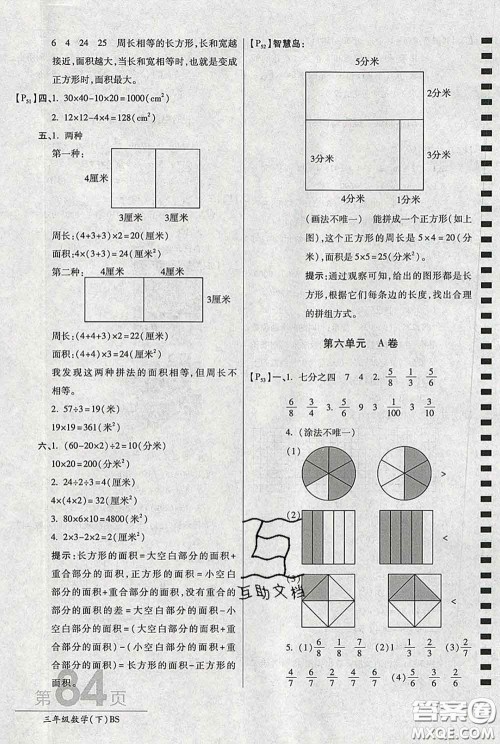 6 4 24 25 周长相等的长方形,长和宽越
接近,面积越大,当长和宽相等时,也就是变成
正方形时,面积最大。
【P51】四、1. 30×40-10×20=1000(cm²)
2. 12×12-4×4=128(cm²)
五、1. 两种
第一种:
4厘米
3厘米 3厘米
周长:(4+3+3)×2=20(厘米)
面积:4×(3+3)=24(厘米²)
第二种:
3厘米
4厘米 4厘米
周长:(4+4+3)×2=22(厘米)
面积:(4+4)×3=24(厘米²)
我发现这两种拼法的面积相等,但周长不相等。
2. 57÷3=19(米)
19×19=361(米²)
六、1. (60-20×2)÷2=10(分米)
10×20=200(分米²)
2. 24÷2÷3=4(米)
4×(4×2)=32(米²)
3. 80×6×10=4800(米²)
4. 2×3-2×2=2(分米²)
提示:长方形的面积=大空白部分的面积+
重合部分的面积,正方形的面积=小空白
部分的面积+重合部分的面积,没有重合
部分的面积的差=大空白部分的面积-小
空白部分的面积=(大空白部分的面积+重
合部分的面积)-(小空白部分的面积+重
合部分的面积)=长方形的面积-正方形的
面积。
第84页
三年级数学(下)BS
【P52】智慧岛:
5分米
2分米
3分米 3分米
4分米 1分米
(画法不唯一) 能拼成一个正方形(如上
图),这个正方形的周长是5×4=20(分米),
面积是5×5=25(分米²)。
提示:通过观察可知,给出的图形都是长
方形,根据它们每条边的长度,找出合理
的拼组方式。
第六单元 A卷
【P53】一、1. 七分之四 7 4 2. 5/6 2/5 5/6
6/8 3/4 3. 9/10 1/100 3/10
4. (涂法不唯一)
(1) <
(2) <
(3) >
5. (1) 6/8 1/8 7/8 (2) 2/6 3/6 5/6 (3) 4/7
2/7 6/7 (4) 2/6 2/6 4/6
互助文档
答案圈
MXQE.COM